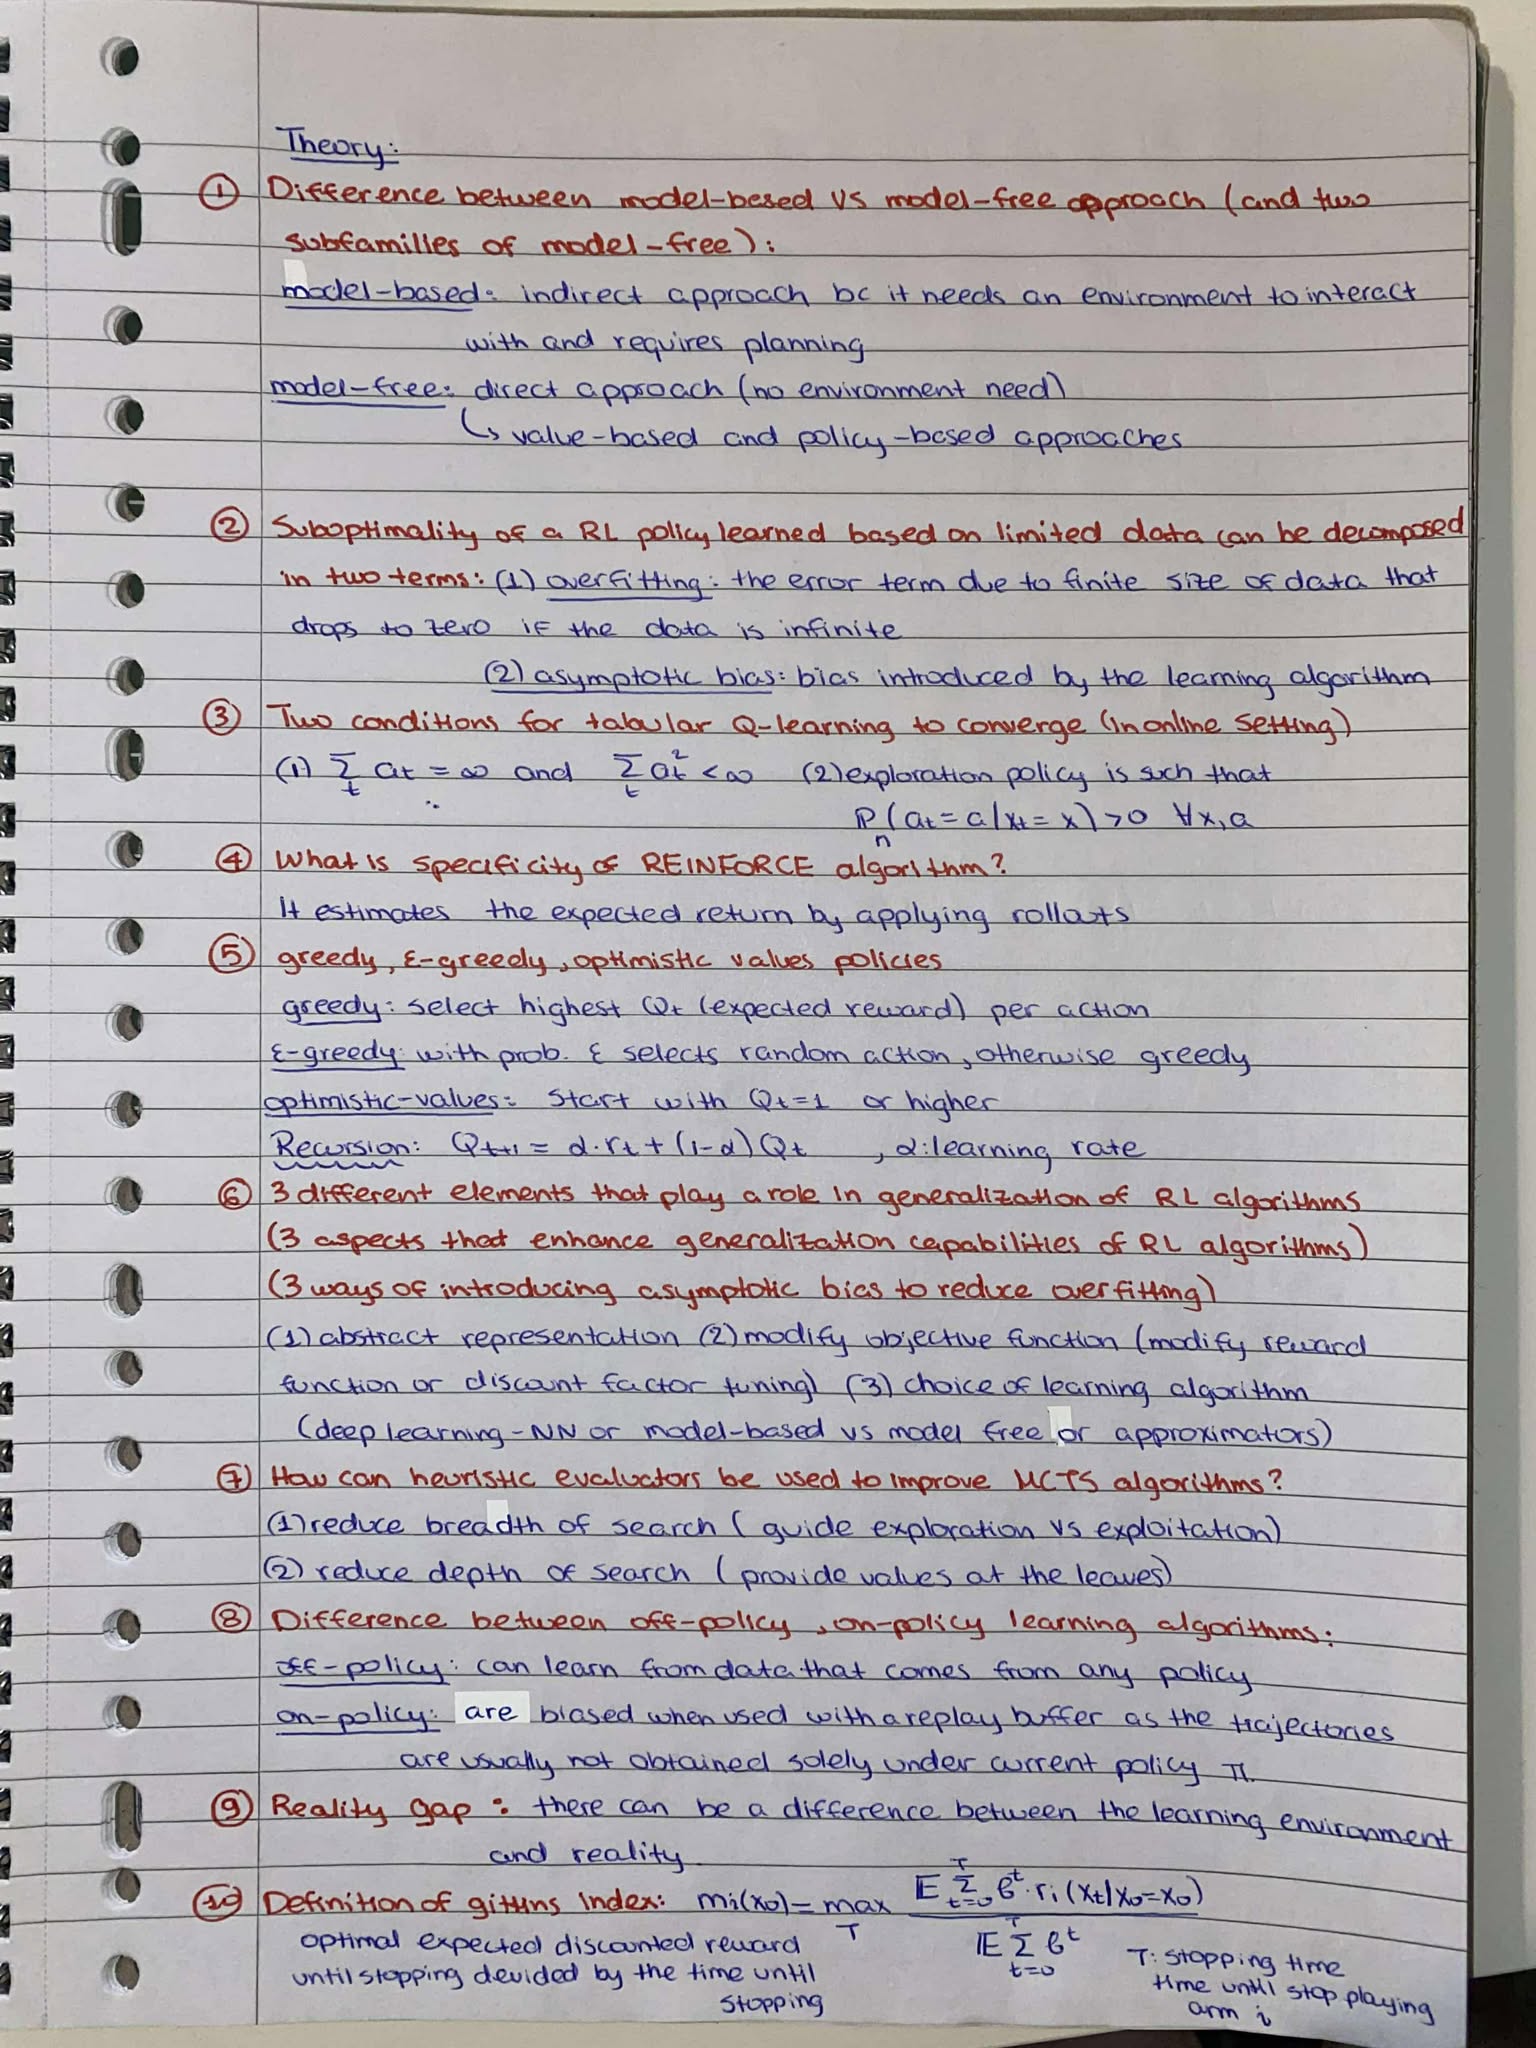 Theory:
① Difference between model-based vs model-free approach (and two
subfamilies of model-free):
model-based: indirect approach bc it needs an environment to interact
with and requires planning
model-free: direct approach (no environment need)
↳ value-based and policy-based approaches
② Suboptimality of a RL policy learned based on limited data can be decomposed
in two terms: (1) overfitting: the error term due to finite size of data that
drops to zero if the data is infinite
(2) asymptotic bias: bias introduced by the learning algorithm
③ Two conditions for tabular Q-learning to converge (in online setting)
(1) Σ_t a_t = ∞ and Σ_t a_t² < ∞ (2) exploration policy is such that
ℙ_n (a_t = a | x_t = x) > 0 ∀x, a
④ What is specificity of REINFORCE algorithm?
It estimates the expected return by applying rollouts
⑤ greedy, ε-greedy, optimistic values policies
greedy: select highest Q_t (expected reward) per action
ε-greedy: with prob. ε selects random action, otherwise greedy
optimistic-values: start with Q_t=1 or higher
Recursion: Q_t+1 = α·r_t + (1-α) Q_t , α: learning rate
⑥ 3 different elements that play a role in generalization of RL algorithms
(3 aspects that enhance generalization capabilities of RL algorithms)
(3 ways of introducing asymptotic bias to reduce overfitting)
(1) abstract representation (2) modify objective function (modify reward
function or discount factor tuning) (3) choice of learning algorithm
(deep learning - NN or model-based vs model free or approximators)
⑦ How can heuristic evaluators be used to improve MCTS algorithms?
(1) reduce breadth of search (guide exploration vs exploitation)
(2) reduce depth of search (provide values at the leaves)
⑧ Difference between off-policy, on-policy learning algorithms:
off-policy: can learn from data that comes from any policy
on-policy: are biased when used with a replay buffer as the trajectories
are usually not obtained solely under current policy π.
⑨ Reality gap: there can be a difference between the learning environment
and reality.
⑩ Definition of gittins index: m_i(x_0) = max_T 𝔼 Σ_{t=0}^T β^t · r_i (x_t | x_0 = x_0) / 𝔼 Σ_{t=0}^T β^t
optimal expected discounted reward
until stopping devided by the time until
stopping
T: stopping time
time until stop playing
arm i